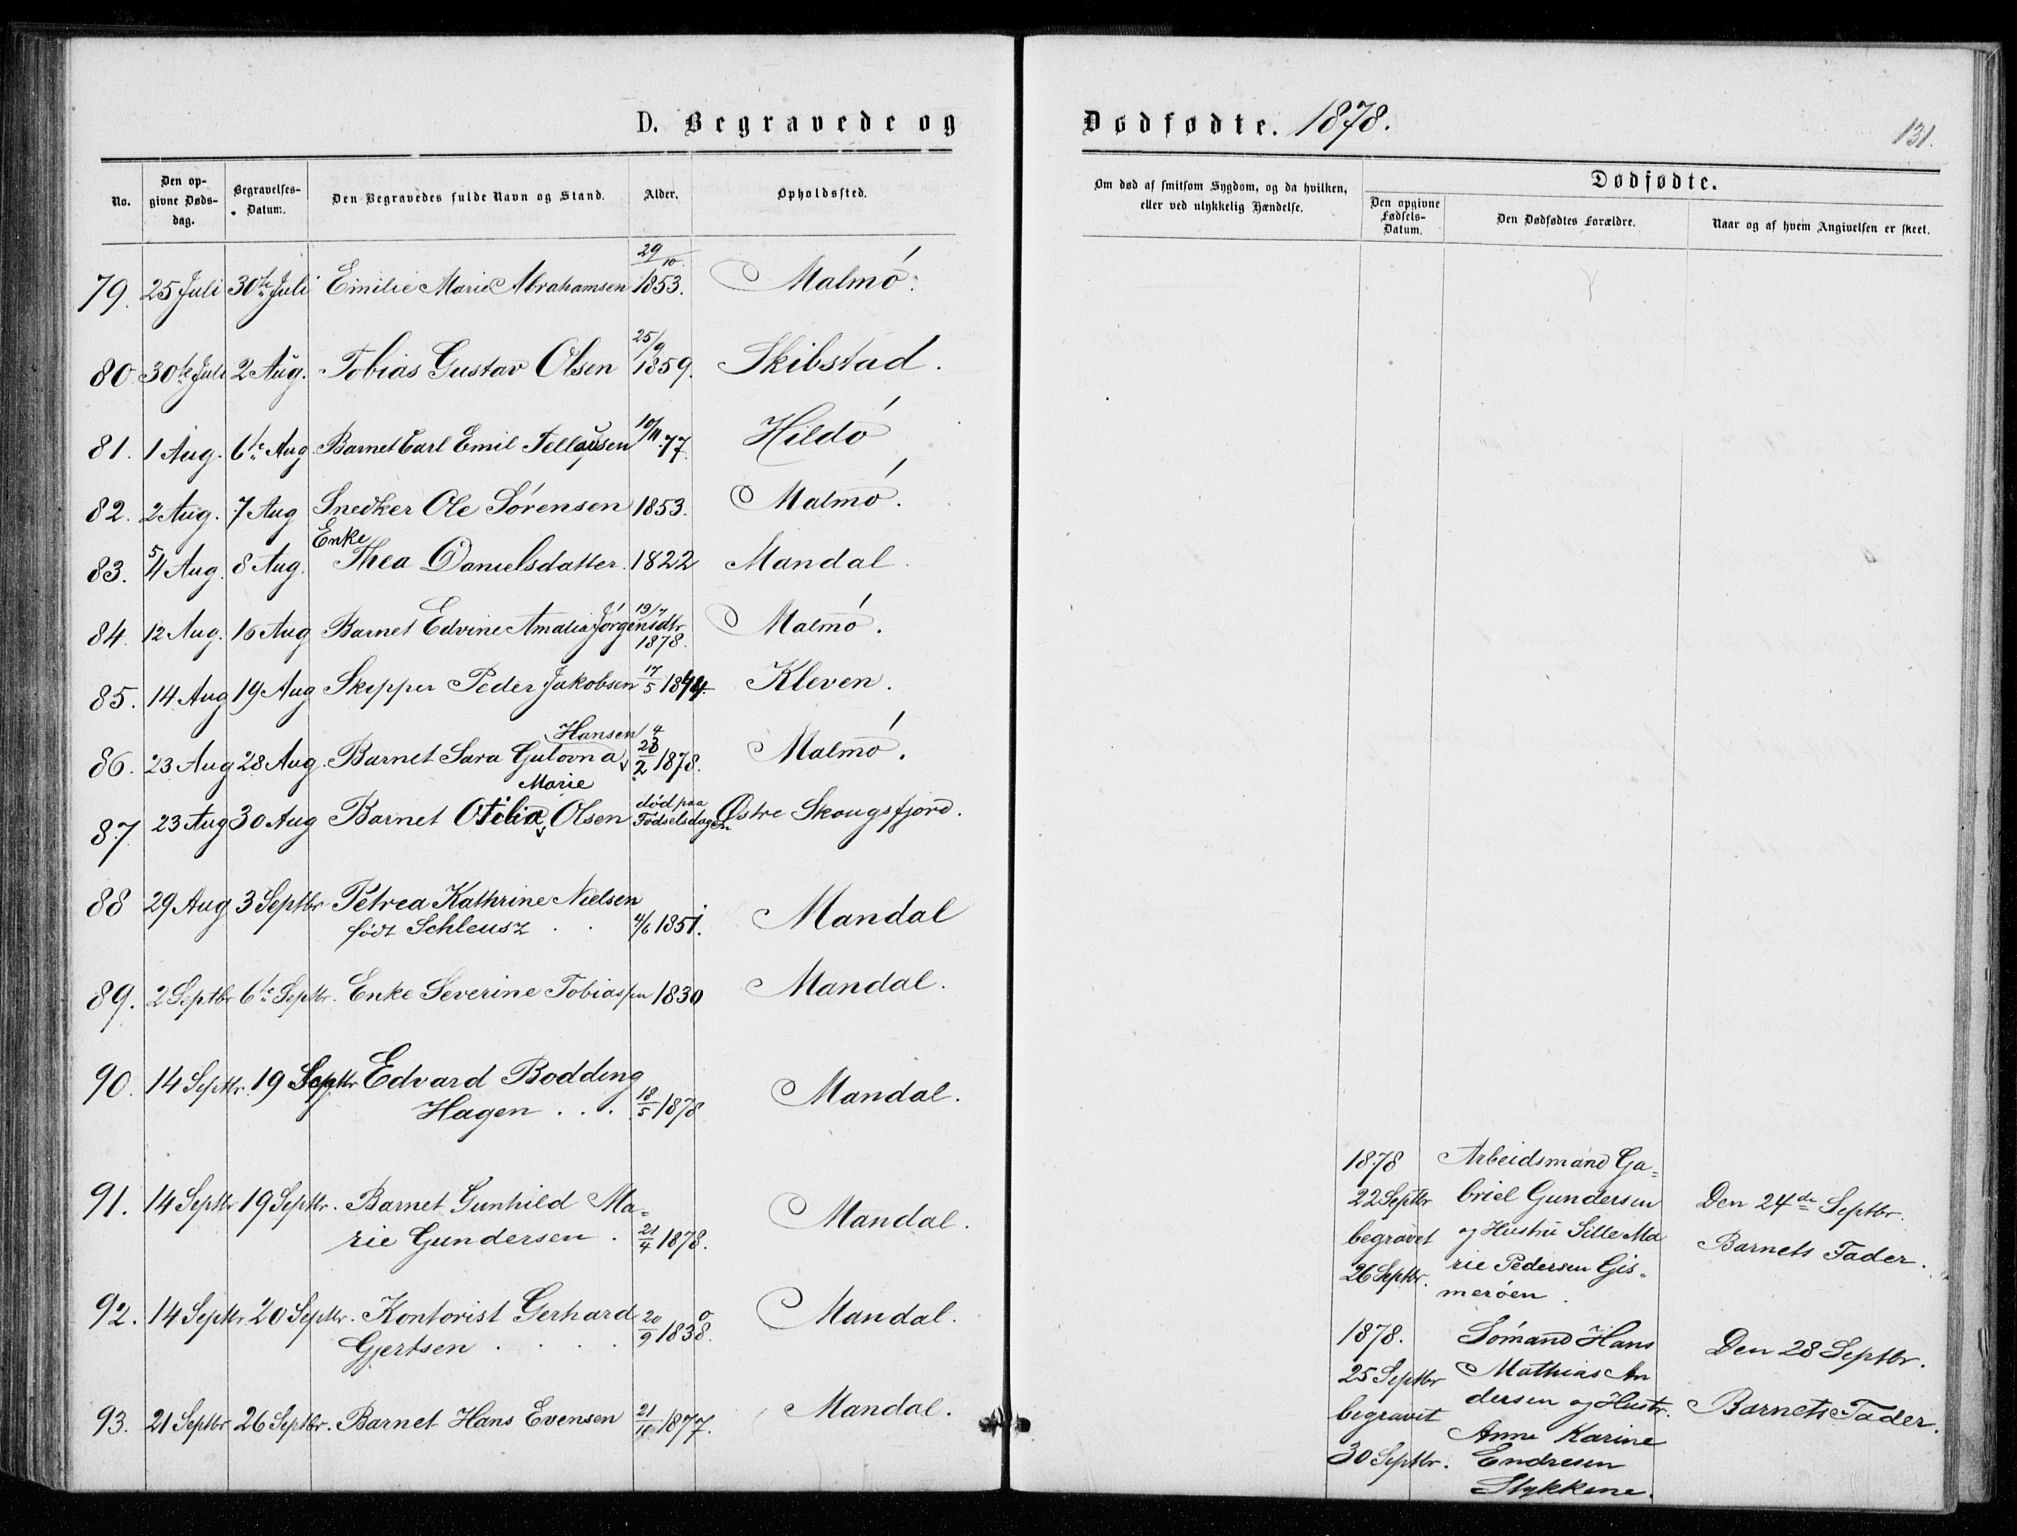 D. Begravede og Dødfødte. 1878.
131.
No.
Den op-
givne Døds-
dag.
Begravelses-
Datum.
Den Begravedes fulde Navn og Stand.
Alder.
Opholdssted.
Om død af smitsom Sygdom, og da hvilken,
eller ved ulykkelig Hændelse.
Dødfødte.
Den opgivne
Fødsels-
Datum.
Den Dødfødtes Forældre.
Naar og af hvem Angivelsen er skeet.
29/10
79. 25 Juli 30te Juli Emilie Marie Abrahamsen 1853. Malmö.
25/9
80 30te Juli 2 Aug. Tobias Gustav Olsen 1859. Skibstad.
81. 1 Aug. 6te Aug Barnet Carl Emil Tellefsen 10/11 77. Hildö
82. 2 Aug. 7 Aug Snedker Ole Sörensen 1853. Malmö.
Enke
83. 5 4 Aug. 8 Aug. Thea Danielsdatter. 1822 Mandal
19/7
84. 12 Aug. 16 Aug Barnet Edvine Amalia Jörgensdtr 1878. Malmö.
85. 14 Aug 19 Aug Skipper Peder Jakobsen 17/5 1844. Kleven.
Hansen 4
86. 23 Aug 28 Aug. Barnet Sara Gulovna 23/2 1878. Malmö.
Marie
87 23 Aug 30 Aug Barnet Otilia Olsen død paa Fødselsdagen Østre Skougsfjord.
88 29 Aug 3 Septbr Petrea Kathrine Nielsen
født Schleusz 4/6 1851. Mandal
89. 2 Septbr 6te Septbr. Enke Severine Tobiassen 1830 Mandal.
90. 14 Septbr. 19 Septbr Edvard Bodding
Hagen . . . 18/5 1878 Mandal.
91. 14 Septbr 19 Septbr. Barnet Gunhild Ma-
rie Gundersen . 21/4 1878. Mandal.
92. 14 Septbr 20 Septbr. Kontorist Gerhard
Gjertsen . . . . 20/9 1838. Mandal.
93. 21 Septbr 26 Septbr. Barnet Hans Evensen 21/10 1877. Mandal.
1878
22 Septbr
begravet
26 Septbr.
Arbeidsmand Ga-
briel Gundersen
og Hustru Sille Ma
rie Pedersen Gis-
merøen.
Den 24de Septbr.
Barnets Fader.
1878.
25 Septbr
begravet
30 Septbr.
Sömand Hans
Mathias An
dersen og Hustr.
Anne Karine
Endresen
Stykkene.
Den 28 Septbr.
Barnets Fader.